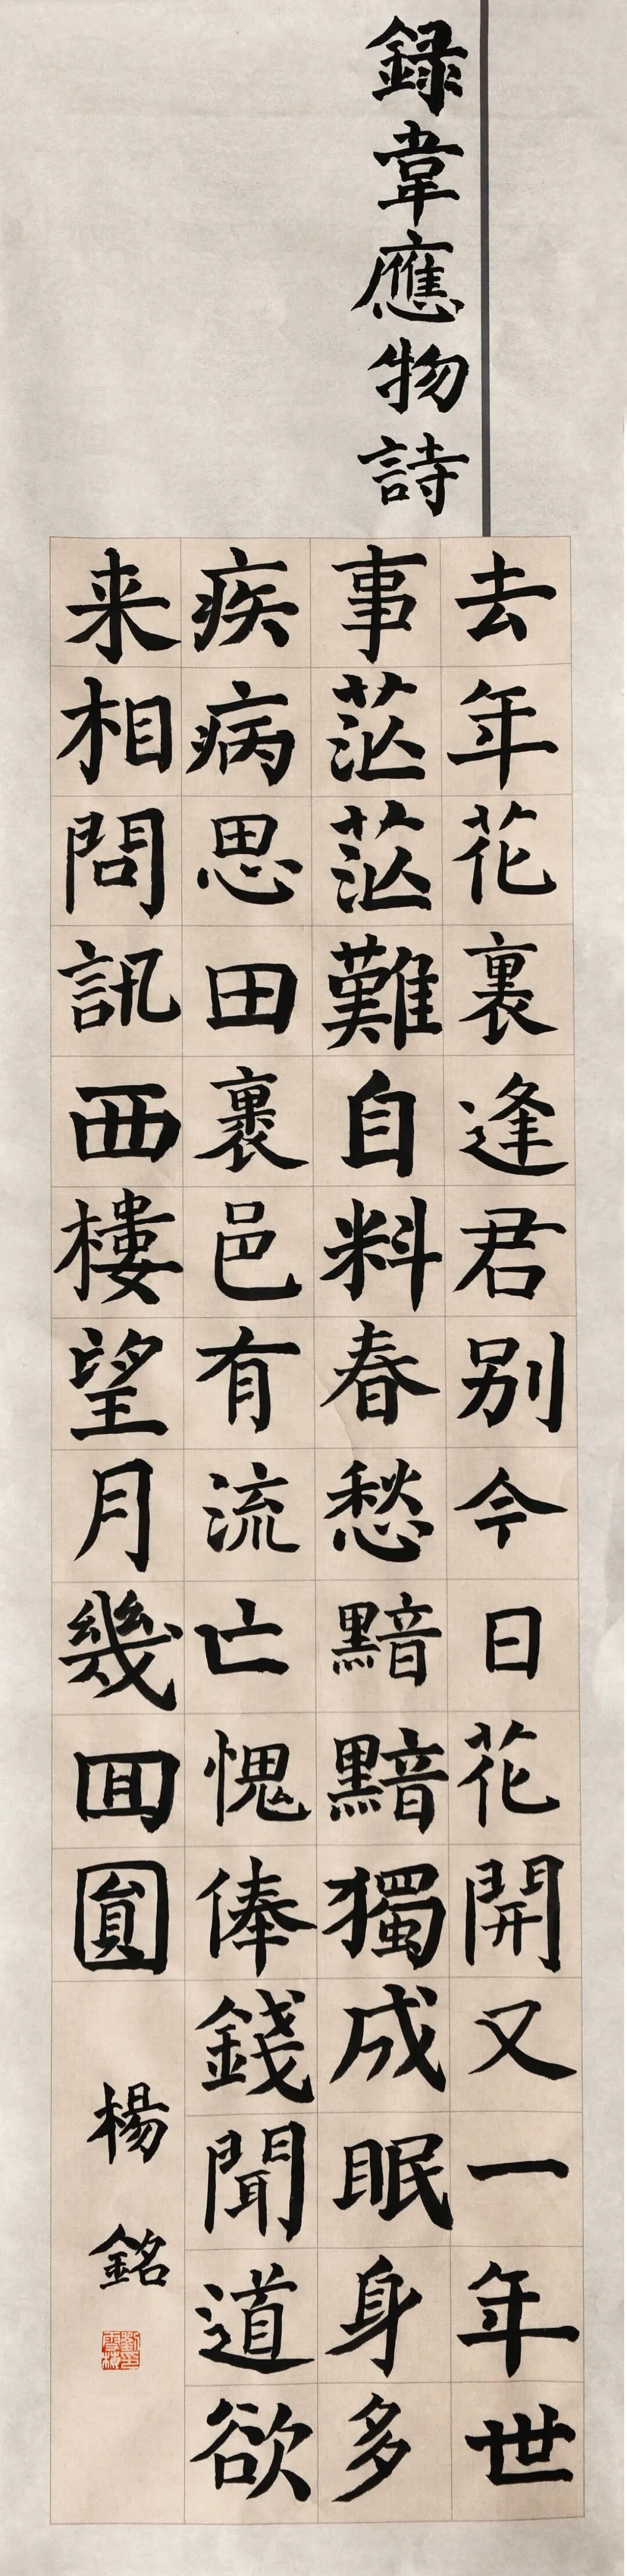 録韋應物詩
去年花裏逢君别今日花開又一年世
事茫茫難自料春愁黯黯獨成眠身多
疾病思田裹邑有流亡愧俸錢聞道欲
来相問訊西樓望月幾回圓
楊銘